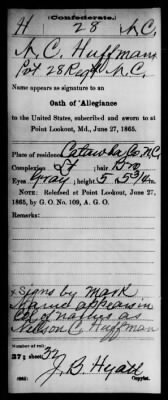 (Confederate.)
H 28 N.C.
N. C. Huffman
Pvt 28 Regt N.C.
Name appears as signature to an
Oath of Allegiance
to the United States, subscribed and sworn to at
Point Lookout, Md., June 27, 1865.
Place of residence Catawba Co. N.C.
Complexion Lt hair Bro
Eyes Gray; height 5 5 3/4 in.
NOTE: Released at Point Lookout, June 27,
1865, by G. O. No. 109, A. G. O.
Remarks:
x Signs by mark
Name appears in
list of names as
Nelson C. Huffman
Number of roll:
371; sheet 32
J. B. Hyatt
Copyist.